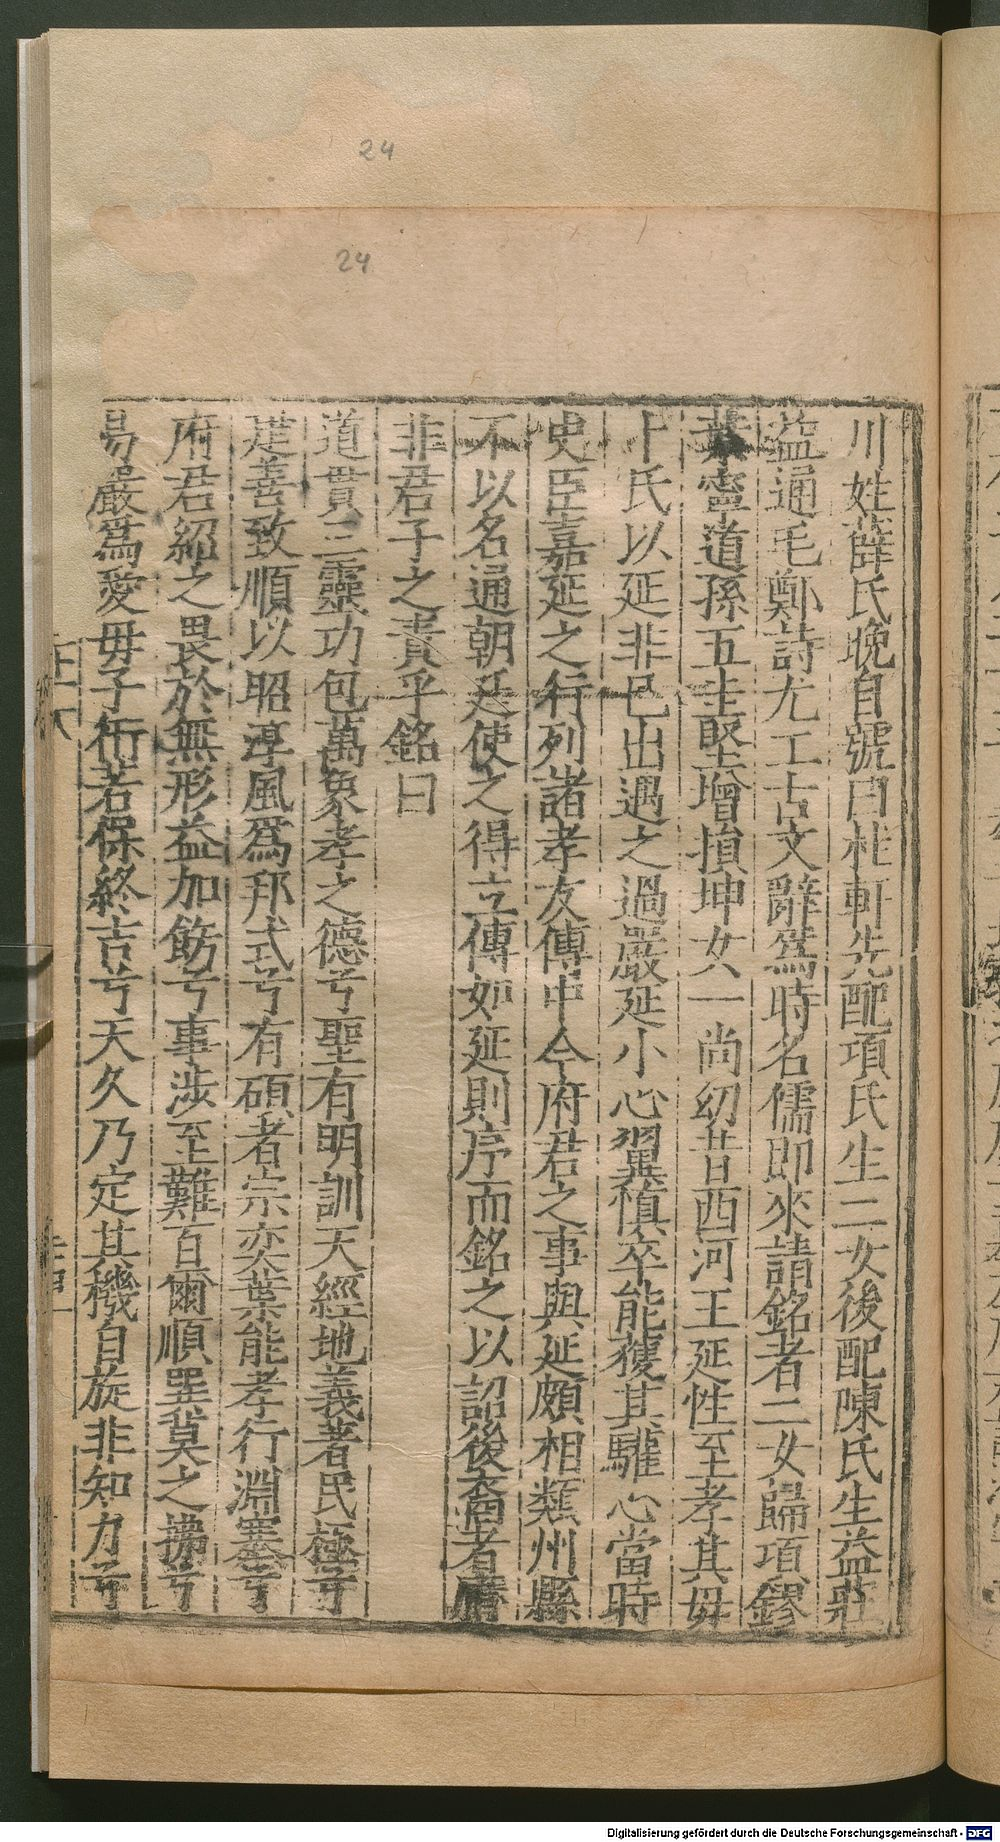 24
24
川姓薛氏晚自號曰桂軒先配項氏生二女後配陳氏生益莊
益通毛鄭詩尤工古文辭爲時名儒即來請銘者二女歸項鏐
葉寧道孫五圭堅增損坤女一尚幼昔西河王延性至孝其毋
卜氏以延非已出遇之過嚴延小心翼慎卒能獲其驩心當時
史臣嘉延之行列諸孝友傳中今府君之事與延頗相類州縣
不以名通朝廷使之得立傳如延則序而銘之以詔後裔者庸
非君子之責乎銘曰
道貫三靈功包萬象孝之德兮聖有明訓天經地義著民極兮
是善致順以昭淳風爲邦式兮有碩者宗奕葉能孝行淵塞兮
府君紹之畏於無形益加飭兮事涉至難百爾順巽冀之擄兮
易嚴爲愛毋子衎若保終吉兮天久乃定其機自旋非知力兮
Digitalisierung gefördert durch die Deutsche Forschungsgemeinschaft - DFG